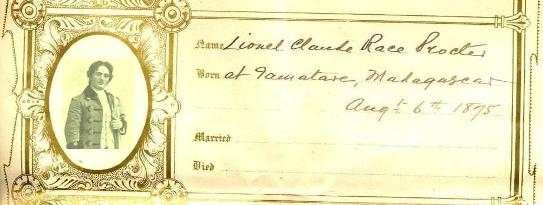 Name Lionel Claude Race Procter
Born at Tamatave, Madagascar
Augt 6th 1895
Married
Died